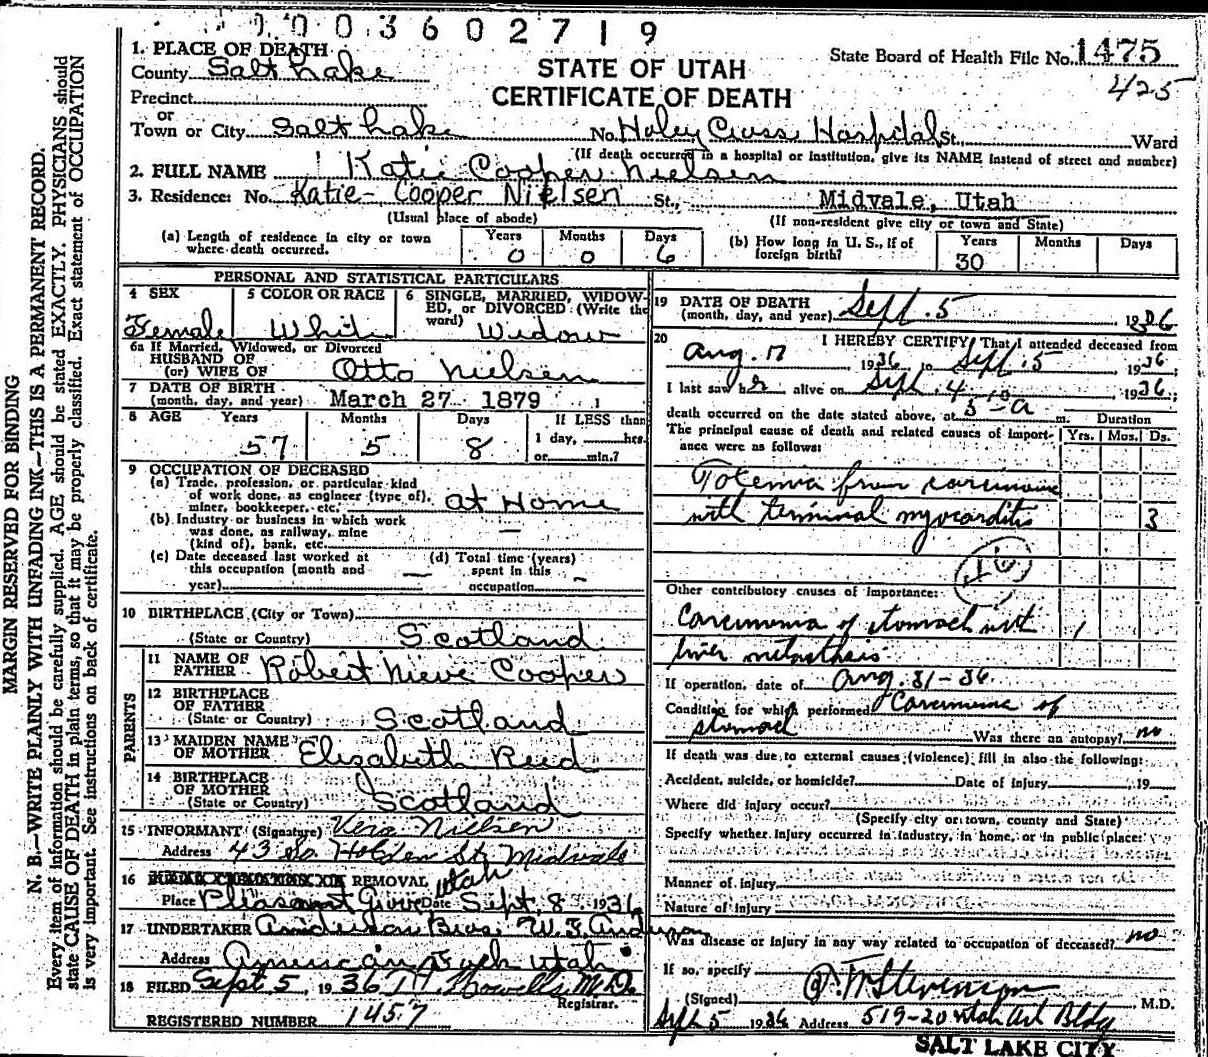 0003602719
1. PLACE OF DEATH
County Salt Lake
STATE OF UTAH
CERTIFICATE OF DEATH
State Board of Health File No. 1475
425
Precinct
or
Town or City Salt Lake No. Holey Cross Hospital St., Ward
(If death occurred in a hospital or institution, give its NAME instead of street and number)
2. FULL NAME Katie Cooper Nielsen
3. Residence: No. Katie-Cooper Nielsen St., Midvale, Utah
(Usual place of abode) (If non-resident give city or town and State)
(a) Length of residence in city or town where death occurred. Years 0 Months 0 Days 6
(b) How long in U. S., if of foreign birth? Years 30 Months Days
PERSONAL AND STATISTICAL PARTICULARS
4 SEX Female
5 COLOR OR RACE White
6 SINGLE, MARRIED, WIDOWED, or DIVORCED (Write the word) Widow
6a If Married, Widowed, or Divorced
HUSBAND OF
(or) WIFE OF Otto Nielsen
7 DATE OF BIRTH
(month, day, and year) March 27 1879
8 AGE Years 57 Months 5 Days 8 If LESS than
1 day, hrs.
or min.?
9 OCCUPATION OF DECEASED
(a) Trade, profession, or particular kind
of work done, as engineer (type of),
miner, bookkeeper, etc. at Home
(b) Industry or business in which work
was done, as railway, mine
(kind of), bank, etc. —
(c) Date deceased last worked at
this occupation (month and
year) —
(d) Total time (years)
spent in this
occupation —
10 BIRTHPLACE (City or Town)
(State or Country) Scotland
PARENTS
11 NAME OF
FATHER Robert Nieve Cooper
12 BIRTHPLACE
OF FATHER
(State or Country) Scotland
13 MAIDEN NAME
OF MOTHER Elizabeth Reed
14 BIRTHPLACE
OF MOTHER
(State or Country) Scotland
15 INFORMANT (Signature) Vera Nielsen
Address 43 So. Holden St. Midvale
16 REMOVAL Utah
Place Pleasant Grove Date Sept. 8 1936
17 UNDERTAKER Anderson Bros. W. F. Anderson
Address American Fork Utah
18 FILED Sept 5, 1936 Howells M.D.
Registrar.
REGISTERED NUMBER 1457
19 DATE OF DEATH
(month, day, and year) Sept. 5, 1936
20 I HEREBY CERTIFY, That I attended deceased from
Aug. 17 1936 to Sept. 5, 1936
I last saw her alive on Sept. 4, 1936;
death occurred on the date stated above, at 5 10 a m.
Duration
The principal cause of death and related causes of importance were as follows: Yrs. Mos. Ds.
Toxemia from carcinoma
with terminal myocarditis 3
Other contributory causes of importance:
Carcinoma of stomach with 1
liver metasthesis
If operation, date of Aug. 31-36
Condition for which performed Carcinoma of
stomach Was there an autopsy? no
If death was due to external causes (violence) fill in also the following:
Accident, suicide, or homicide? Date of injury , 19
Where did injury occur?
(Specify city or town, county and State)
Specify whether injury occurred in industry, in home, or in public place:
Manner of injury
Nature of injury
Was disease or injury in any way related to occupation of deceased? no
If so, specify
(Signed) Stevenson M.D.
Sept 5 1936 Address 519-20 Utah Art Bldg
SALT LAKE CITY
MARGIN RESERVED FOR BINDING
N. B.—WRITE PLAINLY WITH UNFADING INK—THIS IS A PERMANENT RECORD.
Every item of information should be carefully supplied. AGE should be stated EXACTLY. PHYSICIANS should
state CAUSE OF DEATH in plain terms, so that it may be properly classified. Exact statement of OCCUPATION
is very important. See instructions on back of certificate.